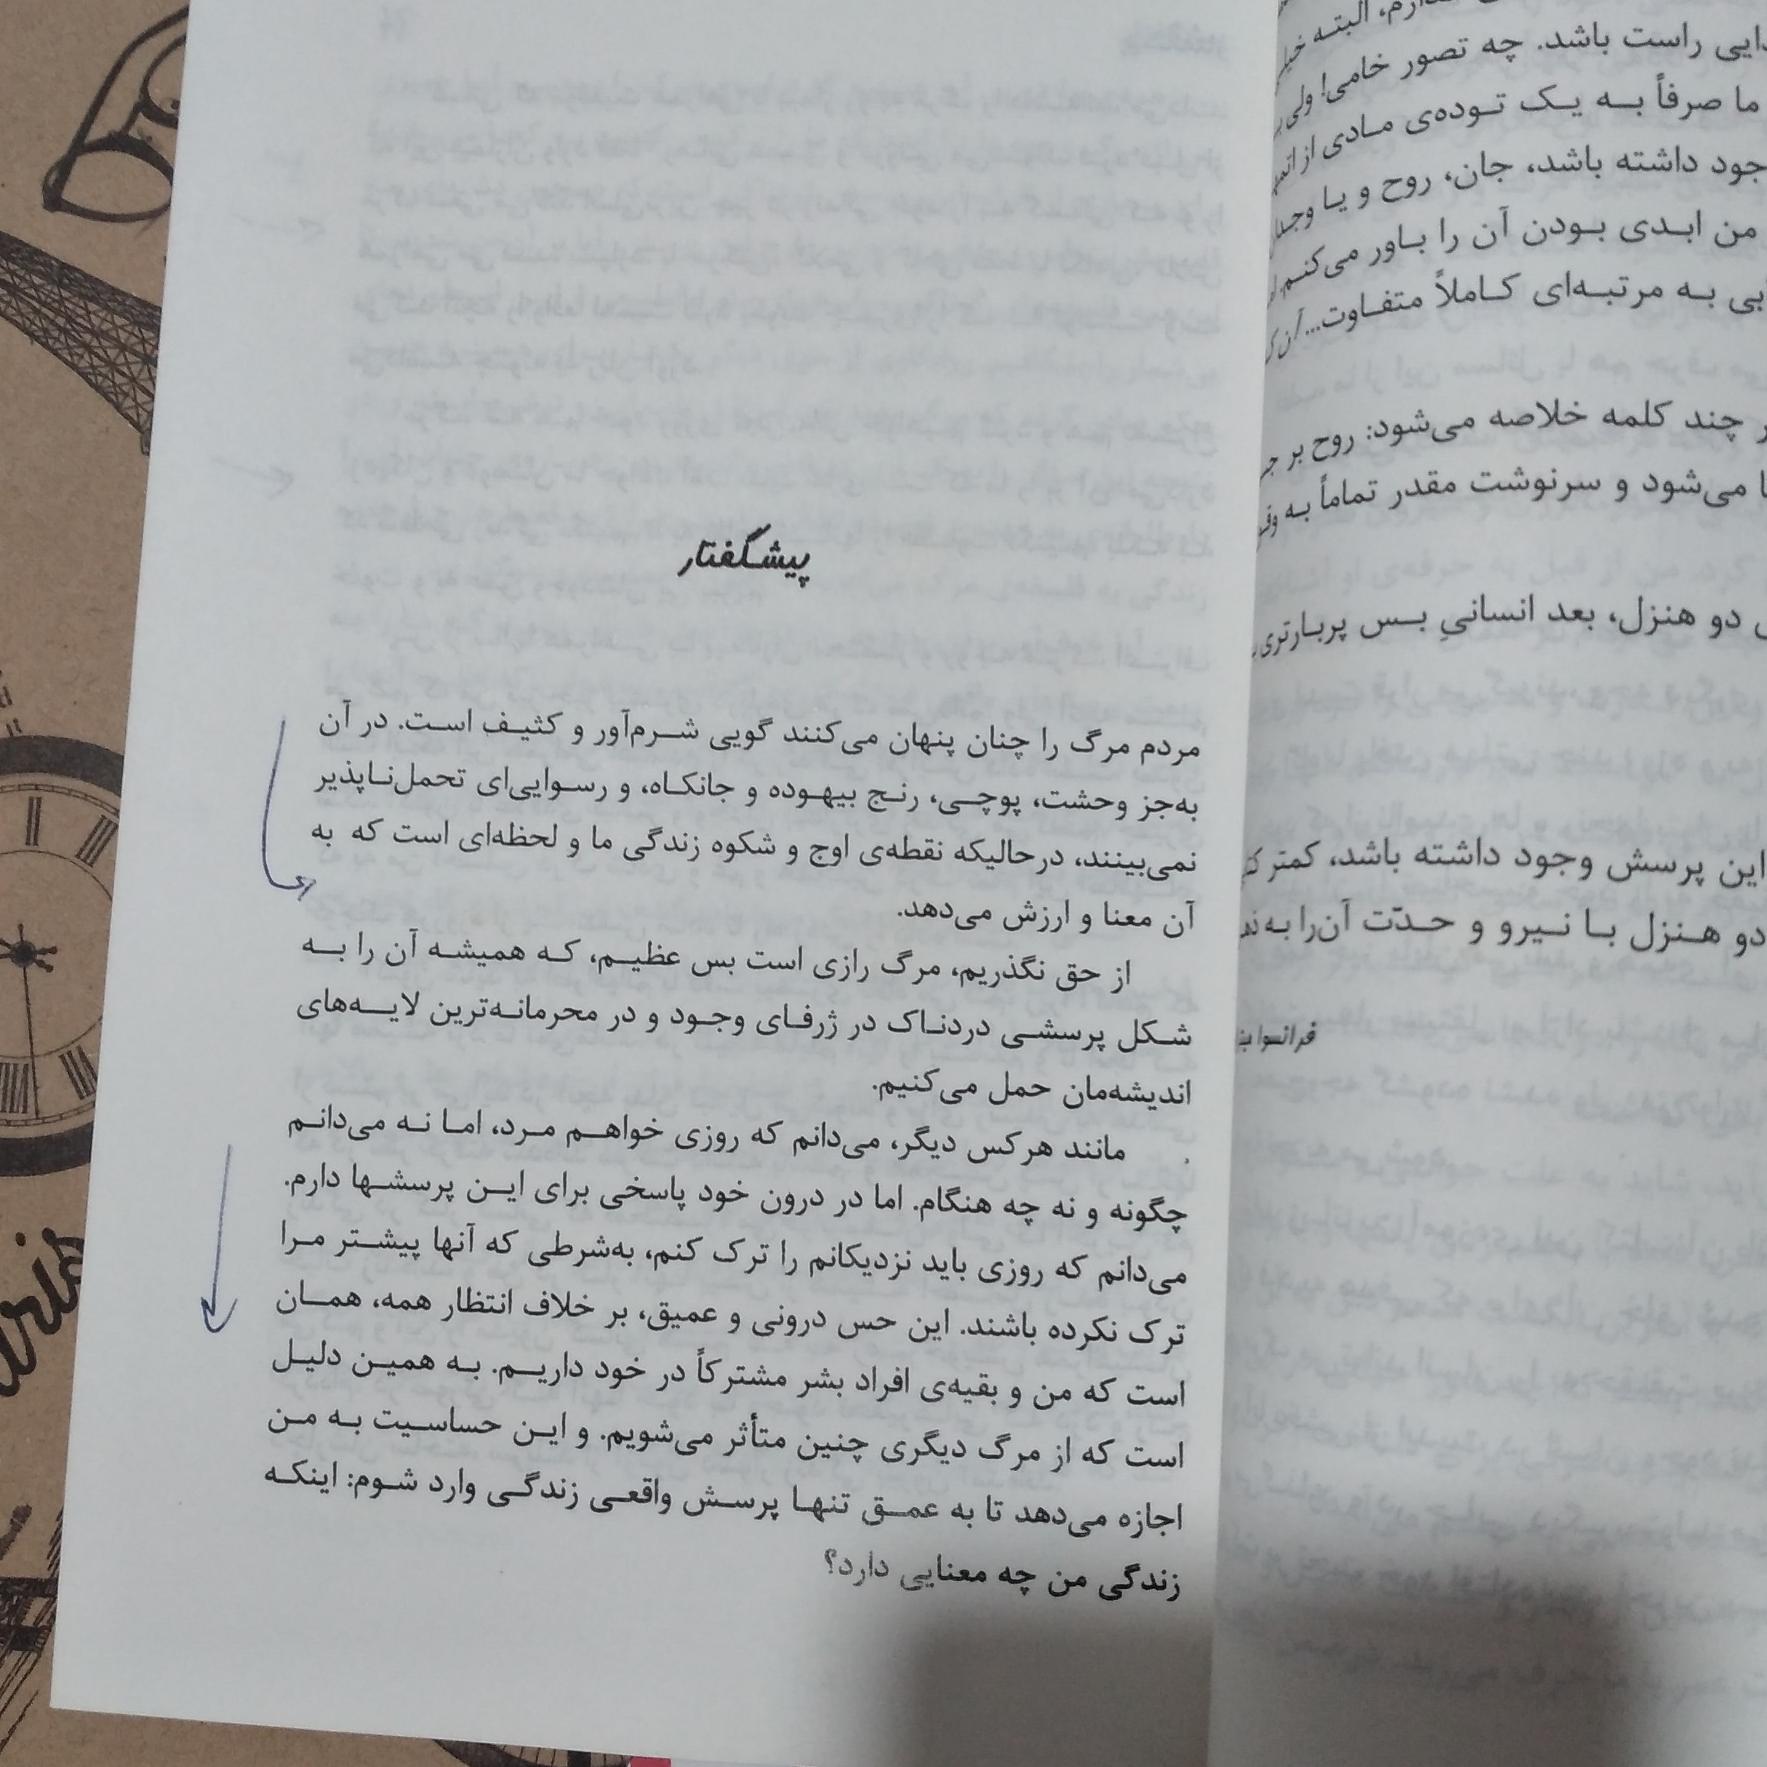 پیشگفتار
مردم مرگ را چنان پنهان می‌کنند گویی شرم‌آور و کثیف است. در آن
به‌جز وحشت، پوچی، رنج بیهوده و جانکاه، و رسوایی‌ای تحمل‌ناپذیر
نمی‌بینند، درحالیکه نقطه‌ی اوج و شکوه زندگی ما و لحظه‌ای است که به
آن معنا و ارزش می‌دهد.
از حق نگذریم، مرگ رازی است بس عظیم، که همیشه آن را به
شکل پرسشی دردناک در ژرفای وجود و در محرمانه‌ترین لایه‌های
اندیشه‌مان حمل می‌کنیم.
مانند هرکس دیگر، می‌دانم که روزی خواهم مرد، اما نه می‌دانم
چگونه و نه چه هنگام. اما در درون خود پاسخی برای این پرسشها دارم.
می‌دانم که روزی باید نزدیکانم را ترک کنم، به‌شرطی که آنها پیشتر مرا
ترک نکرده باشند. این حس درونی و عمیق، بر خلاف انتظار همه، همان
است که من و بقیه‌ی افراد بشر مشترکاً در خود داریم. به همین دلیل
است که از مرگ دیگری چنین متأثر می‌شویم. و این حساسیت به من
اجازه می‌دهد تا به عمق تنها پرسش واقعی زندگی وارد شوم: اینکه
زندگی من چه معنایی دارد؟
البته
راست باشد. چه تصور خامی! ولی
ما صرفاً به یک توده‌ی مادی از
داشته باشد، جان، روح و یا
من ابدی بودن آن را باور می‌کنم
به مرتبه‌ای کاملاً متفاوت...
چند کلمه خلاصه می‌شود: روح بر
می‌شود و سرنوشت مقدر تماماً به
دو هنزل، بعد انسانیِ بس پربارتری
این پرسش وجود داشته باشد، کمتر
دو هنزل با نیرو و حدّت آن‌را به
فرانسوا
ris